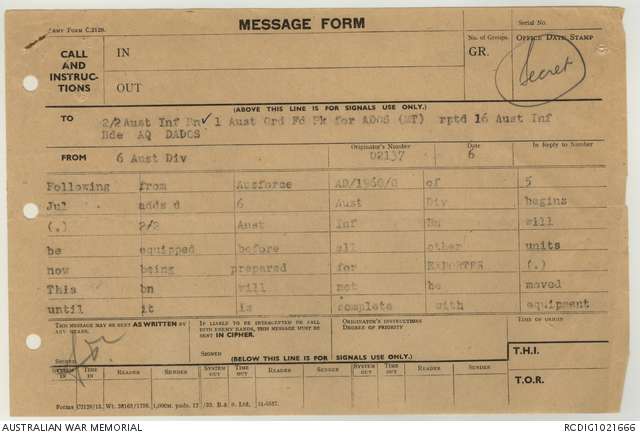 ARMY FORM C.2128.
MESSAGE FORM
Serial No.
CALL AND INSTRUC-TIONS
IN
OUT
No. of Groups.
GR.
OFFICE DATE STAMP
Secret
(ABOVE THIS LINE IS FOR SIGNALS USE ONLY.)
TO
2/2 Aust Inf Bn ✓ 1 Aust Ord Fd Pk for ADOS (MT) rptd 16 Aust Inf
Bde AQ DADOS
FROM
6 Aust Div
Originator's Number
O2137
Date
6
In Reply to Number
Following from Ausforce AD/1960/O of 5
Jul adds d 6 Aust Div begins
(.) 2/2 Aust Inf Bn will
be equipped before all other units
now being prepared for EXPORTER (.)
This bn will not be moved
until it is complete with equipment
THIS MESSAGE MAY BE SENT AS WRITTEN BY ANY MEANS.
IF LIABLE TO BE INTERCEPTED OR FALL INTO ENEMY HANDS, THIS MESSAGE MUST BE SENT IN CIPHER.
ORIGINATOR'S INSTRUCTIONS
DEGREE OF PRIORITY
TIME OF ORIGIN
SIGNED
SIGNED
(BELOW THIS LINE IS FOR SIGNALS USE ONLY.)
T.H.I.
T.O.R.
SYSTEM IN
TIME IN
READER
SENDER
SYSTEM OUT
TIME OUT
READER
SENDER
SYSTEM OUT
TIME OUT
READER
SENDER
AUSTRALIAN WAR MEMORIAL
RCDIG1021666